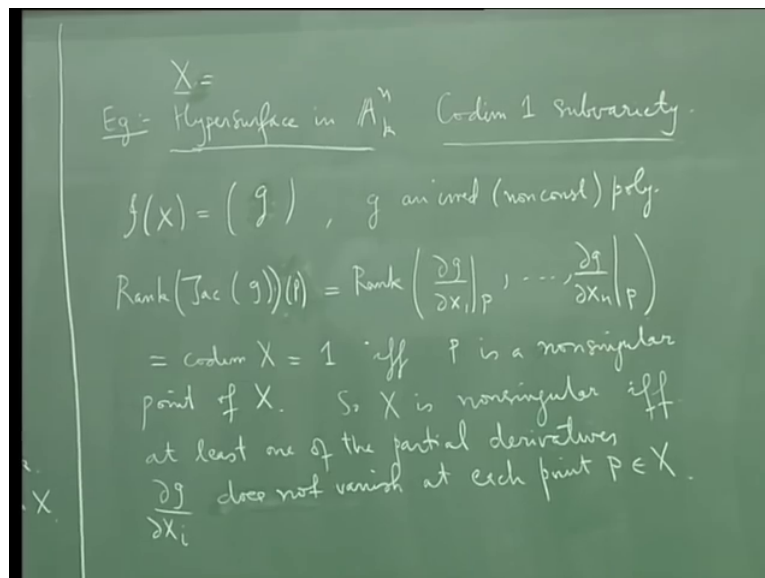 X =
Eg:- Hypersurface in 𝔸ⁿₖ Codim 1 subvariety.
I(X) = ( g ) , g an irred (nonconst) poly.
Rank(Jac(g))(P) = Rank ( ∂g/∂x₁|ₚ , ..., ∂g/∂xₙ|ₚ )
= codim X = 1 iff P is a nonsingular
point of X. So X is nonsingular iff
at least one of the partial derivatives
∂g/∂xᵢ does not vanish at each point P ∈ X.
X